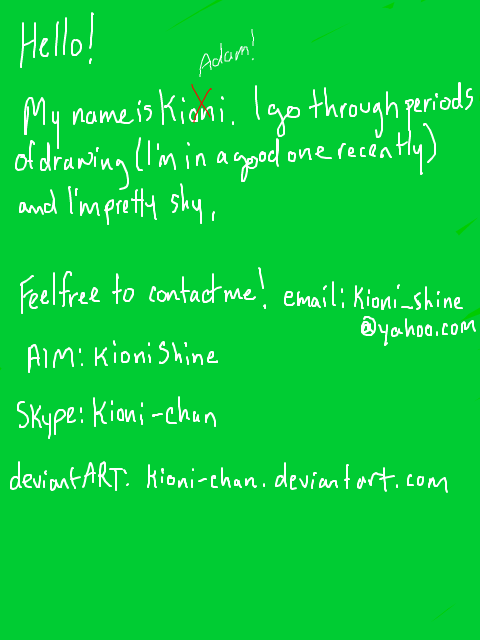 Hello!
Adam!
My name is Kioni. I go through periods
of drawing (I'm in a good one recently)
and I'm pretty shy.
Feel free to contact me! email: Kioni_shine
@yahoo.com
AIM: KioniShine
Skype: Kioni-chan
deviantART: kioni-chan.deviantart.com